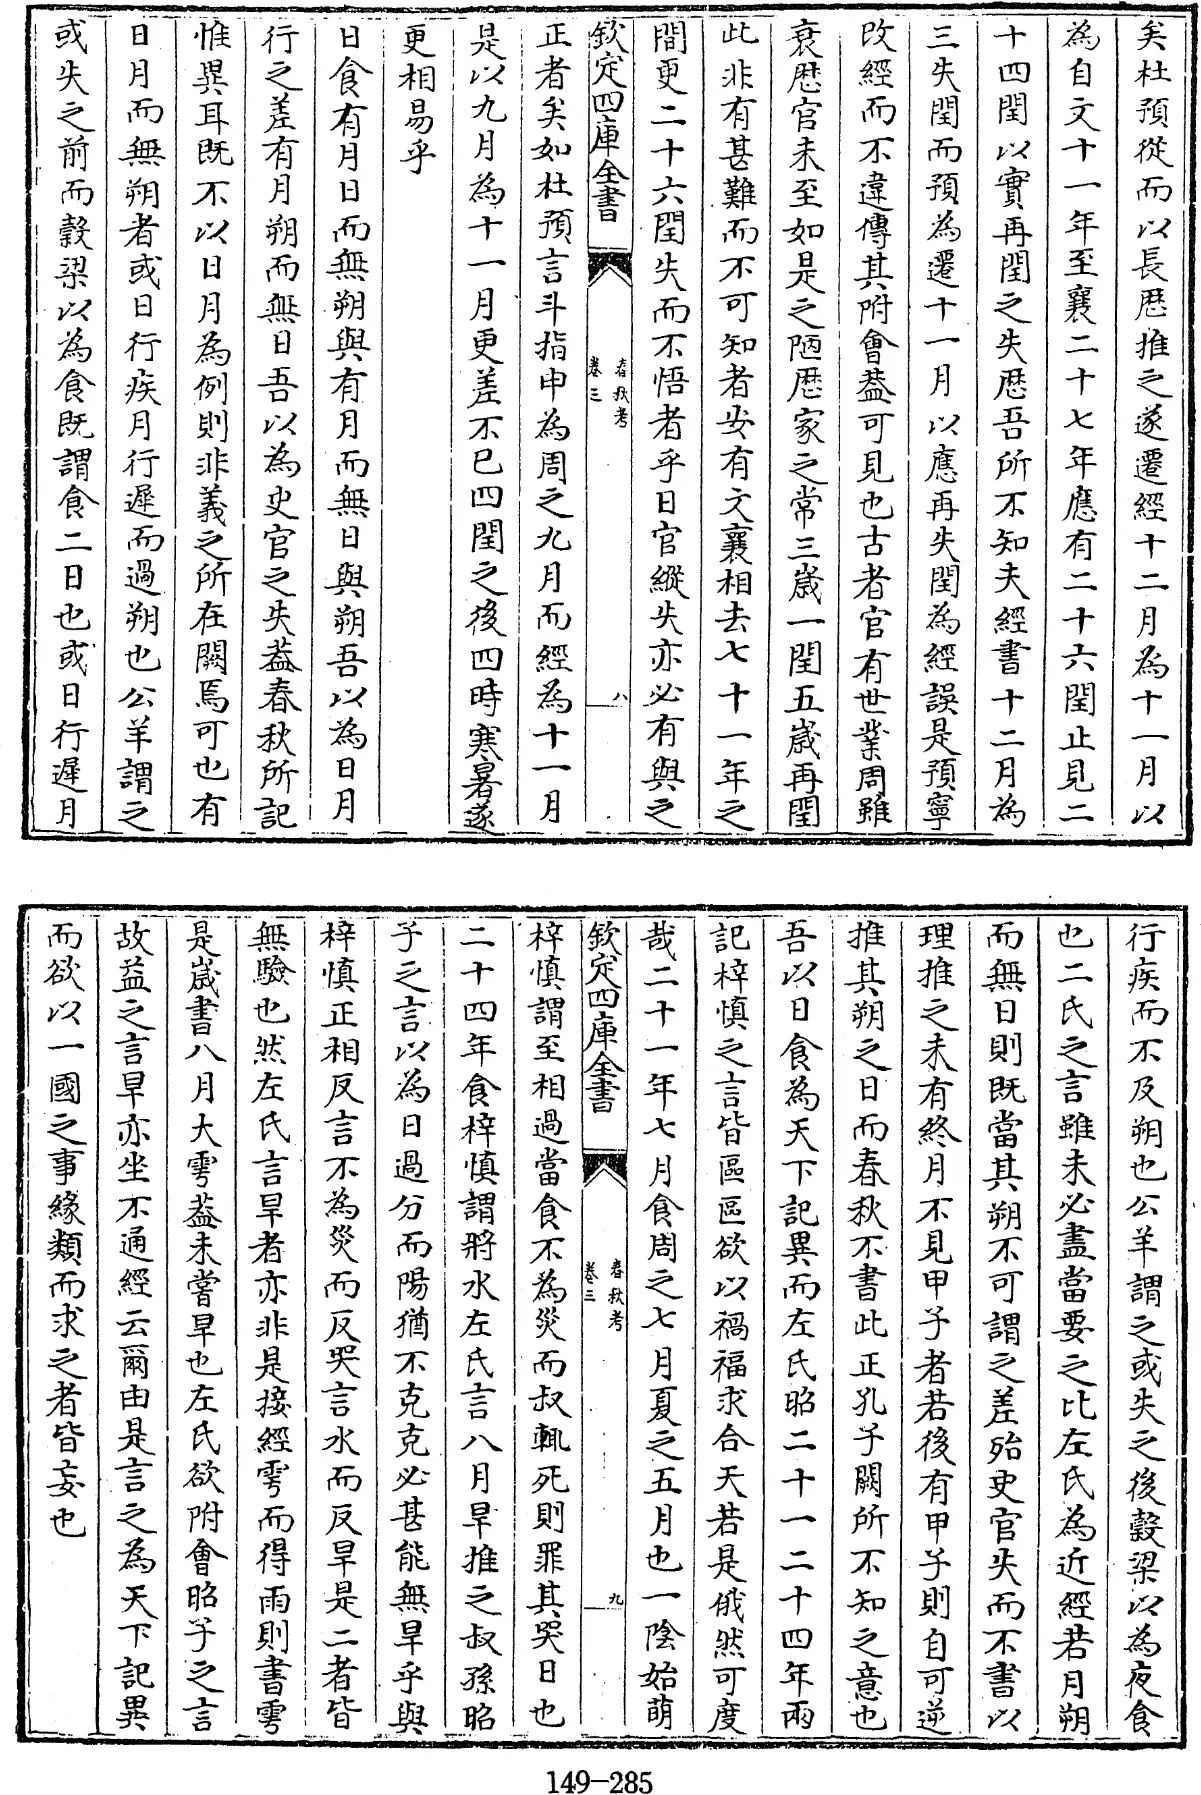 矣杜預從而以長厯推之遂遷經十二月為十一月以
為自文十一年至襄二十七年應有二十六閏止見二
十四閏以實再閏之失厯吾所不知夫經書十二月為
三失閏而預為遷十一月以應再失閏為經誤是預寧
改經而不違傳其附會葢可見也古者官有世業周雖
衰厯官未至如是之陋厯家之常三嵗一閏五嵗再閏
此非有甚難而不可知者安有文襄相去七十一年之
間更二十六閏失而不悟者乎日官縱失亦必有與之
欽定四庫全書
春秋考
卷三
八
正者矣如杜預言斗指申為周之九月而經為十一月
是以九月為十一月更差不已四閏之後四時寒暑遂
更相易乎
日食有月日而無朔與有月而無日與朔吾以為日月
行之差有月朔而無日吾以為史官之失葢春秋所記
惟異耳既不以日月為例則非義之所在闕焉可也有
日月而無朔者或日行疾月行遲而過朔也公羊謂之
或失之前而穀梁以為食既謂食二日也或日行遲月
行疾而不及朔也公羊謂之或失之後穀梁以為夜食
也二氏之言雖未必盡當要之比左氏為近經若月朔
而無日則既當其朔不可謂之差殆史官失而不書以
理推之未有終月不見甲子者若後有甲子則自可逆
推其朔之日而春秋不書此正孔子闕所不知之意也
吾以日食為天下記異而左氏昭二十一二十四年兩
記梓慎之言皆區區欲以禍福求合天若是俄然可度
哉二十一年七月食周之七月夏之五月也一陰始萌
欽定四庫全書
春秋考
卷三
九
梓慎謂至相過當食不為災而叔輒死則罪其哭日也
二十四年食梓慎謂將水左氏言八月旱推之叔孫昭
子之言以為日過分而陽猶不克克必甚能無旱乎與
梓慎正相反言不為災而反哭言水而反旱是二者皆
無驗也然左氏言旱者亦非是接經雩而得雨則書雩
是嵗書八月大雩葢未嘗旱也左氏欲附會昭子之言
故益之言旱亦坐不通經云爾由是言之為天下記異
而欲以一國之事緣類而求之者皆妄也
149-285